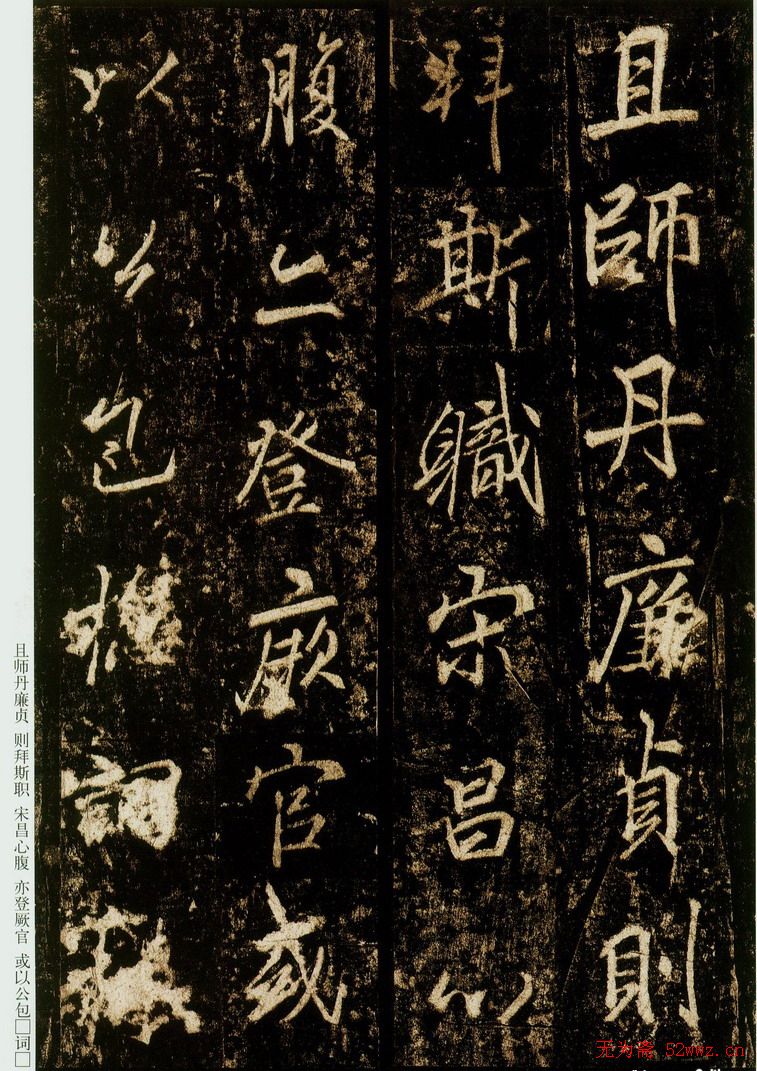 且師丹廉貞則
拜斯職宋昌心
腹亦登厥官或
以公包詞
且师丹廉贞 则拜斯职 宋昌心腹 亦登厥官 或以公包□词□
无为斋 52wwz.cn